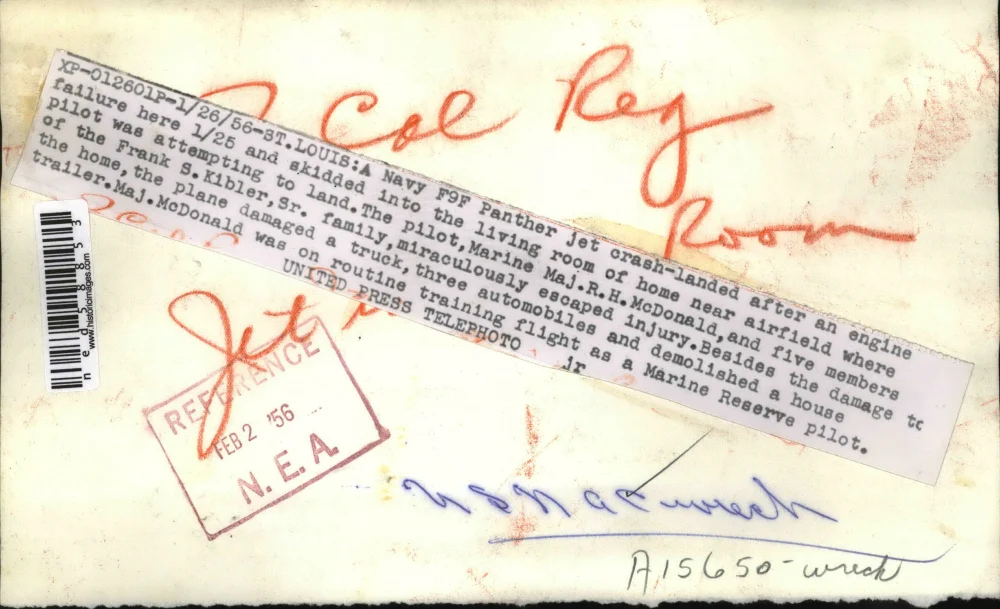 XP-012601P-1/26/56-ST.LOUIS:A Navy F9F Panther jet crash-landed after an engine
failure here 1/25 and skidded into the living room of home near airfield where
pilot was attempting to land.The pilot,Marine Maj.R.H.McDonald,and five members
of the Frank S.Kibler,Sr. family,miraculously escaped injury.Besides the damage to
the home,the plane damaged a truck,three automobiles and demolished a house
trailer.Maj.McDonald was on routine training flight as a Marine Reserve pilot.
UNITED PRESS TELEPHOTO jr
Col Reg
Room
Jet
REFERENCE
FEB 2 '56
N.E.A.
USN a wreck
A15650-wreck
ned558853
www.historicimages.com